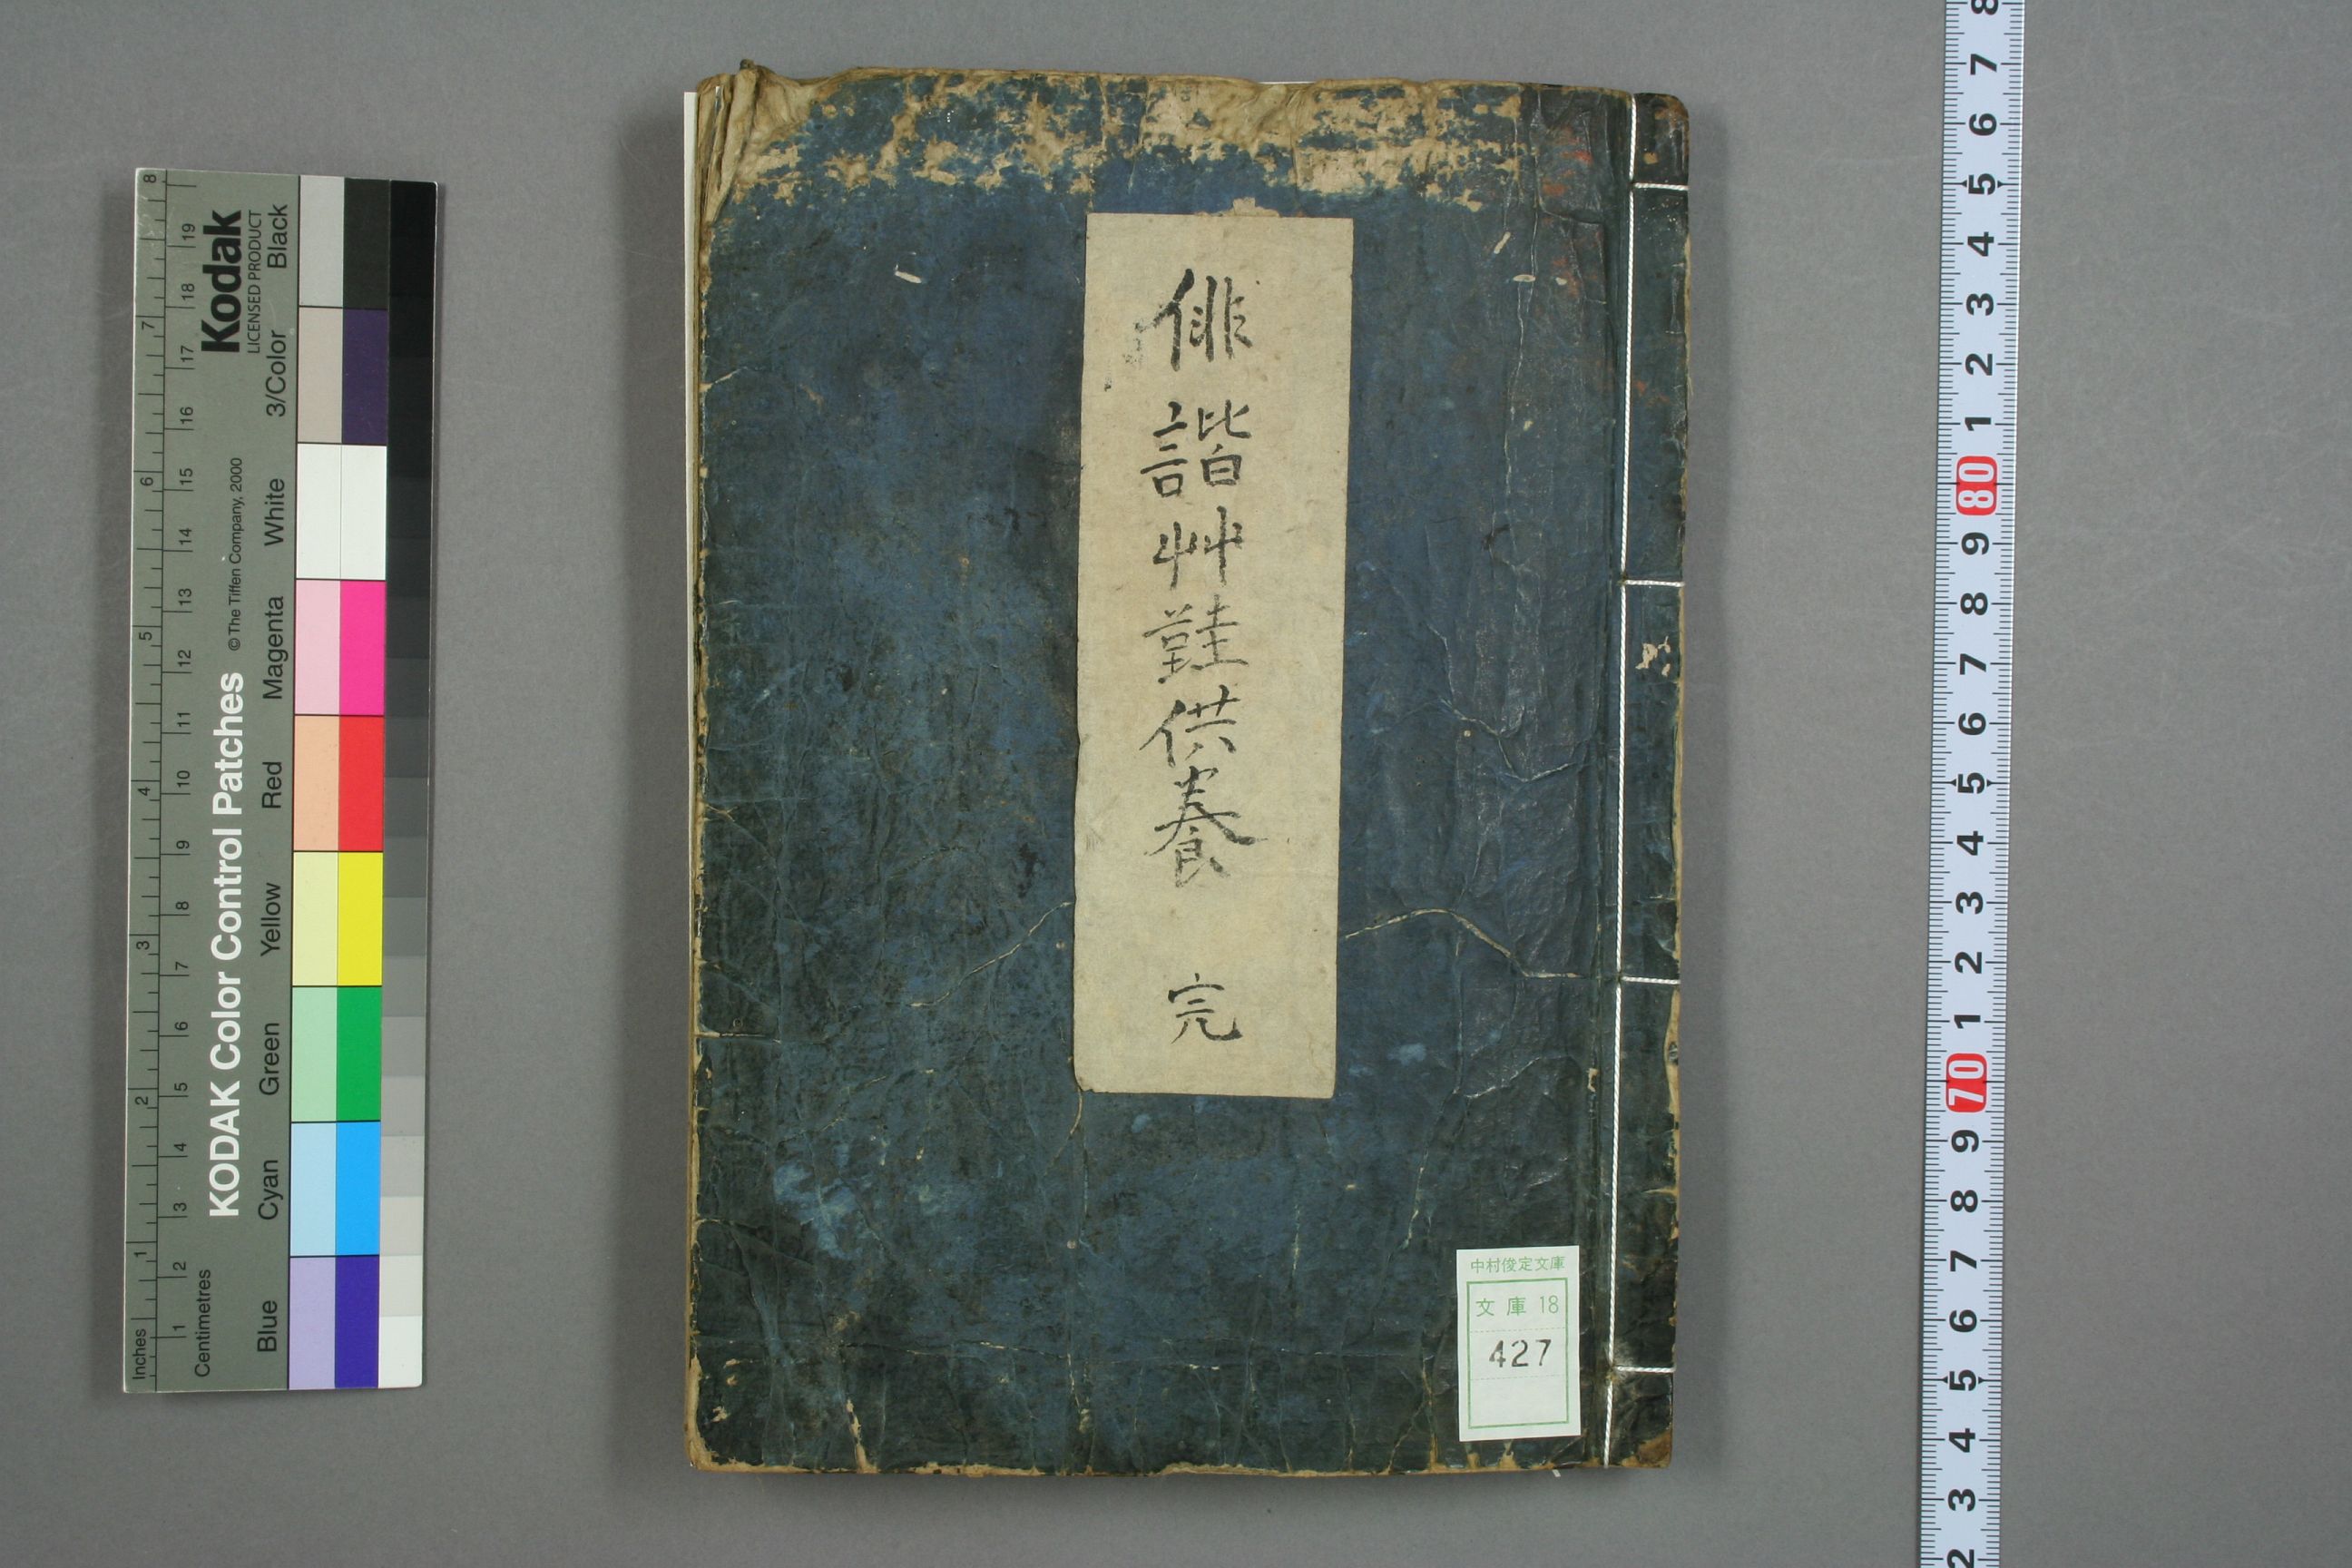 俳諧艸鞋供養 完
中村俊定文庫
文庫 18
427
Kodak
LICENSED PRODUCT
KODAK Color Control Patches
©The Tiffen Company, 2000
Black
3/Color
White
Magenta
Red
Yellow
Green
Cyan
Blue
Inches
1 2 3 4 5 6 7 8
Centimetres
1 2 3 4 5 6 7 8 9 10 11 12 13 14 15 16 17 18 19
8 7 6 5 4 3 2 1 80 9 8 7 6 5 4 3 2 1 70 9 8 7 6 5 4 3 2